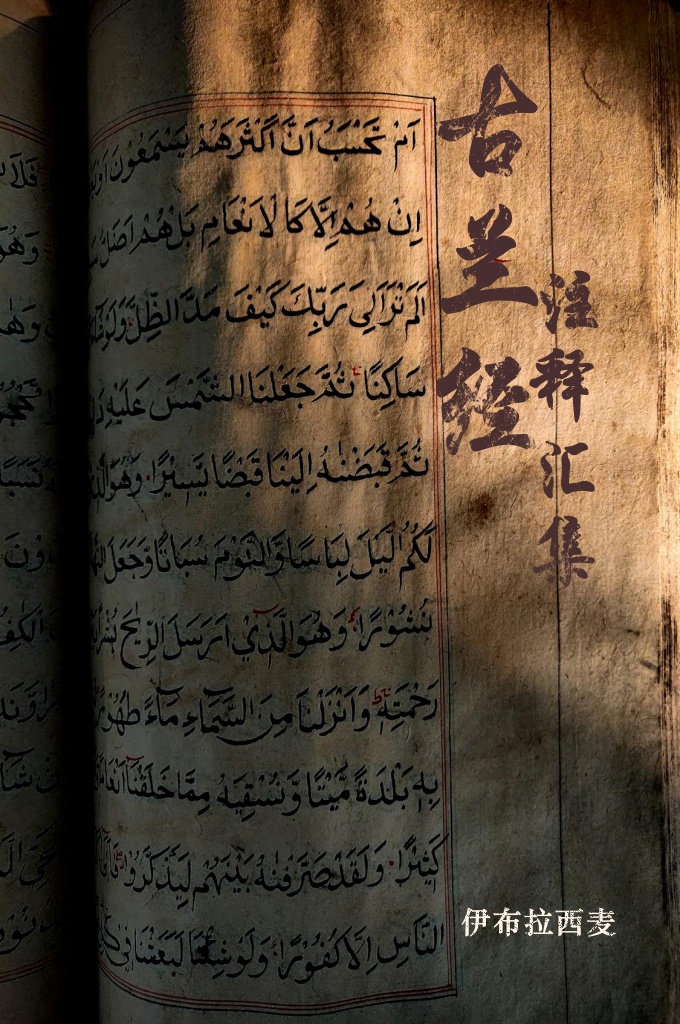 古兰经
注释汇集
اَمْ تَحْسَبُ اَنَّ اَكْثَرَهُمْ يَسْمَعُوْنَ اَوْ
اِنْ هُمْ اِلَّا كَا لْاَنْعَامِ بَلْ هُمْ اَضَلُّ
اَلَمْ تَرَ اَلِى رَبِّكَ كَيْفَ مَدَّ الظِّلَّ وَلَوْ شَاءَ
سَاكِنًا ثُمَّ جَعَلْنَا الشَّمْسَ عَلَيْهِ
ثُمَّ قَبَضْنٰهُ اِلَيْنَا قَبْضًا يَّسِيْرًا وَهُوَ الَّذِ
لَكُمُ الَّيْلَ لِبَاسًا وَّالنَّوْمَ سُبَاتًا وَّجَعَلَ
نُشُوْرًا وَهُوَ الَّذِيْ اَرْسَلَ الرِّيٰحَ
رَحْمَتِهٖ وَاَنْزَلْنَا مِنَ السَّمَاءِ مَاءً طَهُوْرًا
بِهٖ بَلْدَةً مَّيْتًا وَّنُسْقِيَهٗ مِمَّا خَلَقْنَا اَنْعَا
كَثِيْرًا وَلَقَدْ صَرَّفْنٰهُ بَيْنَهُمْ لِيَذَّكَّرُوْا
النَّاسِ اِلَّا كُفُوْرًا وَلَوْ شِئْنَا لَبَعَثْنَا فِيْ
伊布拉西麦